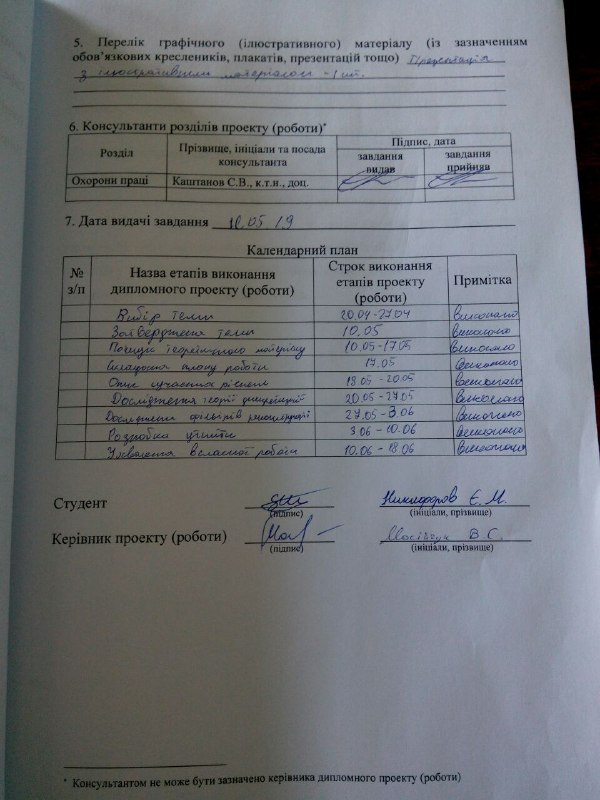 5. Перелік графічного (ілюстративного) матеріалу (із зазначенням
обов’язкових креслеників, плакатів, презентацій тощо) Презентація
з ілюстративним матеріалом - 1 шт.
6. Консультанти розділів проекту (роботи)*
Розділ
Прізвище, ініціали та посада
консультанта
Підпис, дата
завдання
видав
завдання
прийняв
Охорони праці Каштанов С.В., к.т.н., доц.
7. Дата видачі завдання 10.05 19
Календарний план
№
з/п
Назва етапів виконання
дипломного проекту (роботи)
Строк виконання
етапів проекту
(роботи)
Примітка
Вибір теми 20.04-27.04 Виконано
Затвердження теми 10.05 Виконано
Пошук теоретичного матеріалу 10.05-17.05 Виконано
Складання плану роботи 17.05 Виконано
Опис сучасних рішень 18.05-20.05 Виконано
Дослідження теорії 20.05-27.05 Виконано
Дослідження фільтрів 27.05-3.06 Виконано
Розробка утиліти 3.06-10.06 Виконано
роботи 10.06-18.06 Виконано
Студент
(підпис)
Никифоров Є. М.
(ініціали, прізвище)
Керівник проекту (роботи)
(підпис)
В. С.
(ініціали, прізвище)
* Консультантом не може бути зазначено керівника дипломного проекту (роботи)